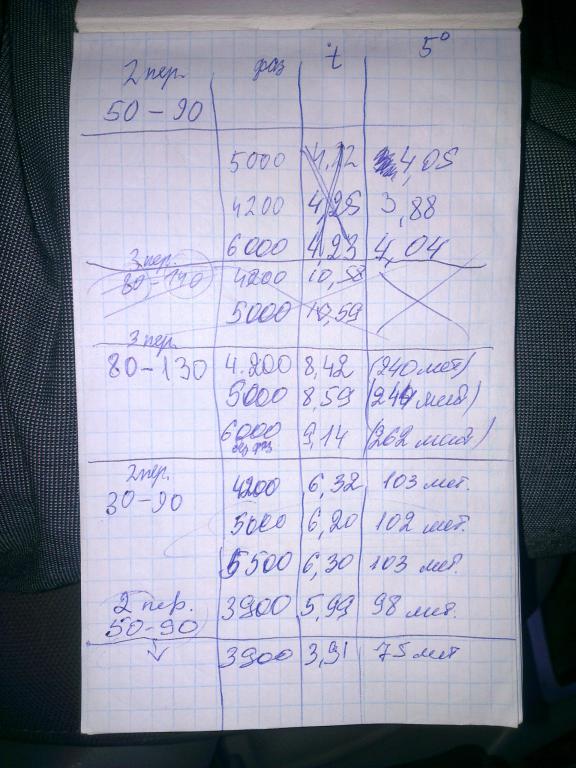 2 пер. фаз t 5°
50 – 90
5000 4,12 4,05
4200 4,25 3,88
6000 4,23 4,04
3 пер.
80 – 140 4200 10,58
5000 10,59
3 пер.
80 – 130 4.200 8,42 (240 мет)
5000 8,59 (244 мет)
6000 9,14 (262 мет)
2 пер.
30 – 90 4200 6,32 103 мет.
5000 6,20 102 мет.
5500 6,30 103 мет.
2 пер. 3900 5,99 98 мет.
50 – 90
3900 3,91 75 мет